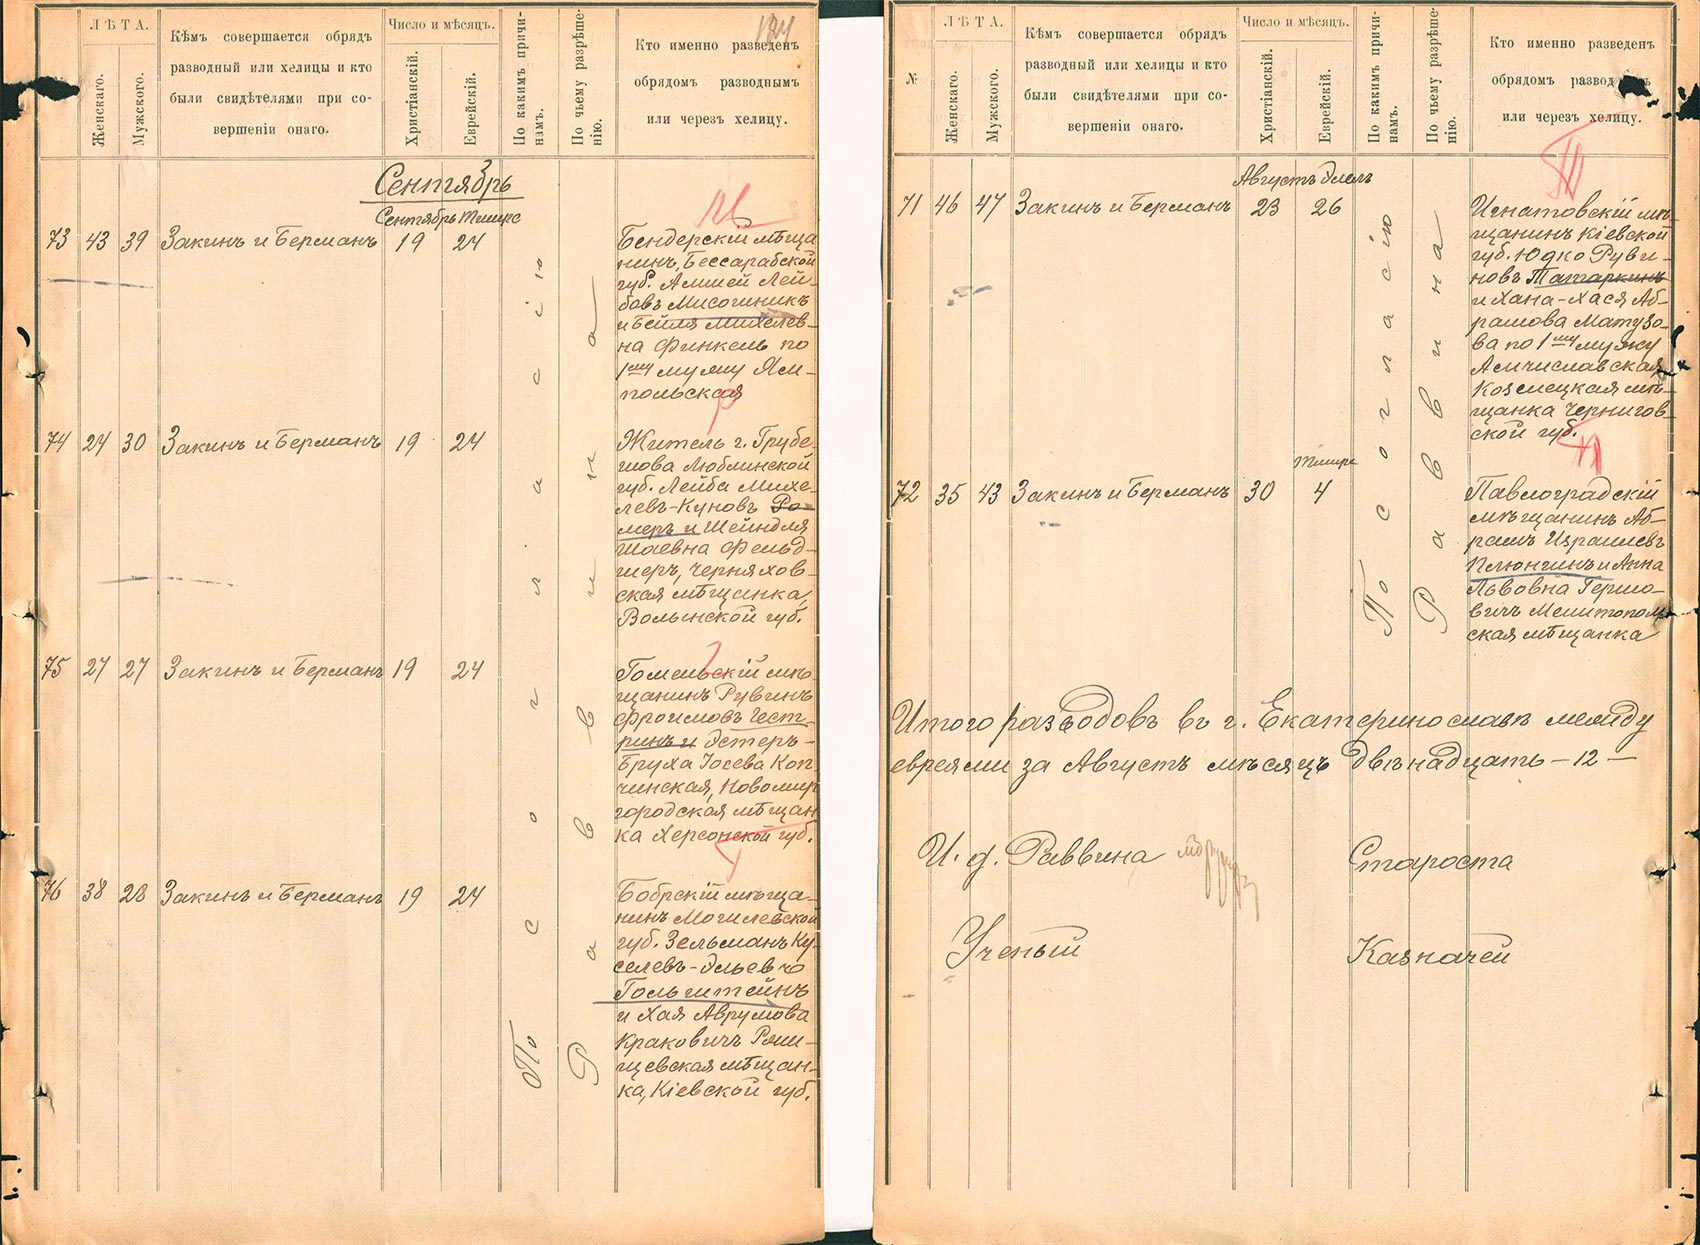 ЛѢТА.
Женскаго.
Мужского.
Кѣмъ совершается обрядъ
разводный или хелицы и кто
были свидѣтелями при со-
вершеніи онаго.
Число и мѣсяцъ.
Христіанскій.
Еврейскій.
По какимъ причи-
намъ.
По чьему разрѣше-
нію.
Кто именно разведенъ
обрядомъ разводнымъ
или черезъ хелицу.
Сентябрь
Сентябрь Тишре
73 43 39 Закинъ и Берманъ 19 24
Бендерскій мѣща
нинъ, Бессарабской
губ. Алшей Лей-
бовъ Мисошникъ
и Бейля Михелев-
на Финкель по
1му мужу Ям-
польская
74 24 30 Закинъ и Берманъ 19 24
Житель г. Грубе-
шова Люблинской
губ. Лейба Михе-
левъ-Куновъ Ро-
меръ и Шейндля
Шаевна Фельд-
шеръ, Черняхов-
ская мѣщанка,
Волынской губ.
75 27 27 Закинъ и Берманъ 19 24
Гомельскій мѣ-
щанинъ Рувинъ
Фроимовъ Чест-
ринъ и Эстеръ-
Бруха Іосева Коп-
чинская, Новомир
городская мѣщан
ка Херсонской губ.
76 38 28 Закинъ и Берманъ 19 24
Бобрскій мѣща-
нинъ Могилевской
губ. Зельманъ Ку-
селевъ-Эльевъ
Гольштейнъ
и Хая Аврумова
Краковичъ Ржи-
щевская мѣщан-
ка, Кіевской губ.
По согласію
Раввина
№
ЛѢТА.
Женскаго.
Мужского.
Кѣмъ совершается обрядъ
разводный или хелицы и кто
были свидѣтелями при со-
вершеніи онаго.
Число и мѣсяцъ.
Христіанскій.
Еврейскій.
По какимъ причи-
намъ.
По чьему разрѣше-
нію.
Кто именно разведенъ
обрядомъ
или черезъ хелицу.
Августъ Элелъ
71 46 47 Закинъ и Берманъ 23 26
Игнатовскій мѣ-
щанинъ Кіевской
губ. Юдко Руви-
новъ Татаркинъ
и Хана-Хася Аб-
рамова Матузо-
ва по 1му мужу
Амчиславская
Козелецкая мѣ-
щанка Чернигов-
ской губ.
Тишре
72 35 43 Закинъ и Берманъ 30 4
Павлоградскій
мѣщанинъ Аб-
рамъ Израилевъ
Клюнгинъ и Анна
Львовна Гершо-
вичъ Мелитополь
ская мѣщанка
По согласію
Раввина
Итого разводовъ въ г. Екатеринославѣ между
евреями за Августъ мѣсяцъ двѣнадцать – 12 –
И. д. Раввина
Староста
Ученый
Казначей